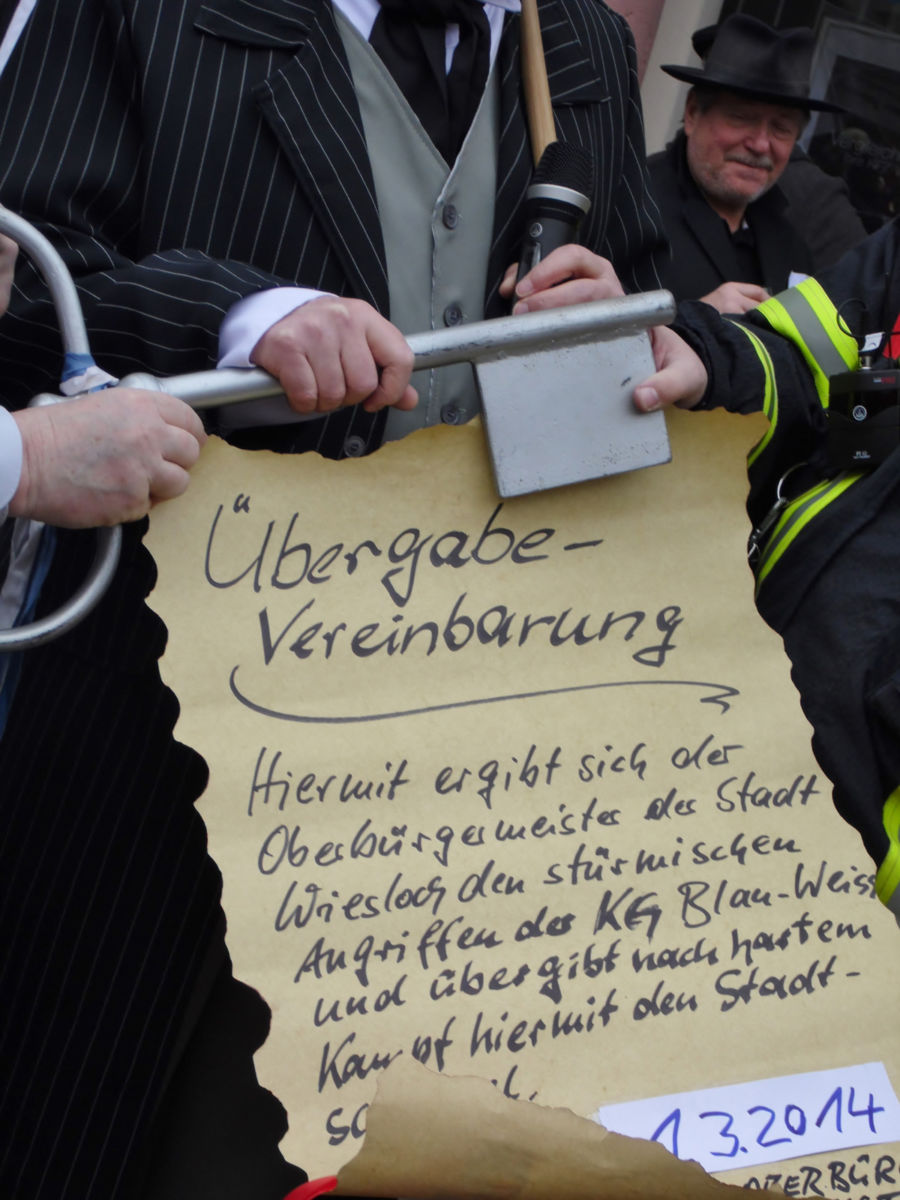 Übergabe-
Vereinbarung
Hiermit ergibt sich der
Oberbürgermeister der Stadt
Wiesloch den stürmischen
Angriffen der KG Blau-Weiss
und übergibt nach hartem
Kampf hiermit den Stadt-
1.3.2014